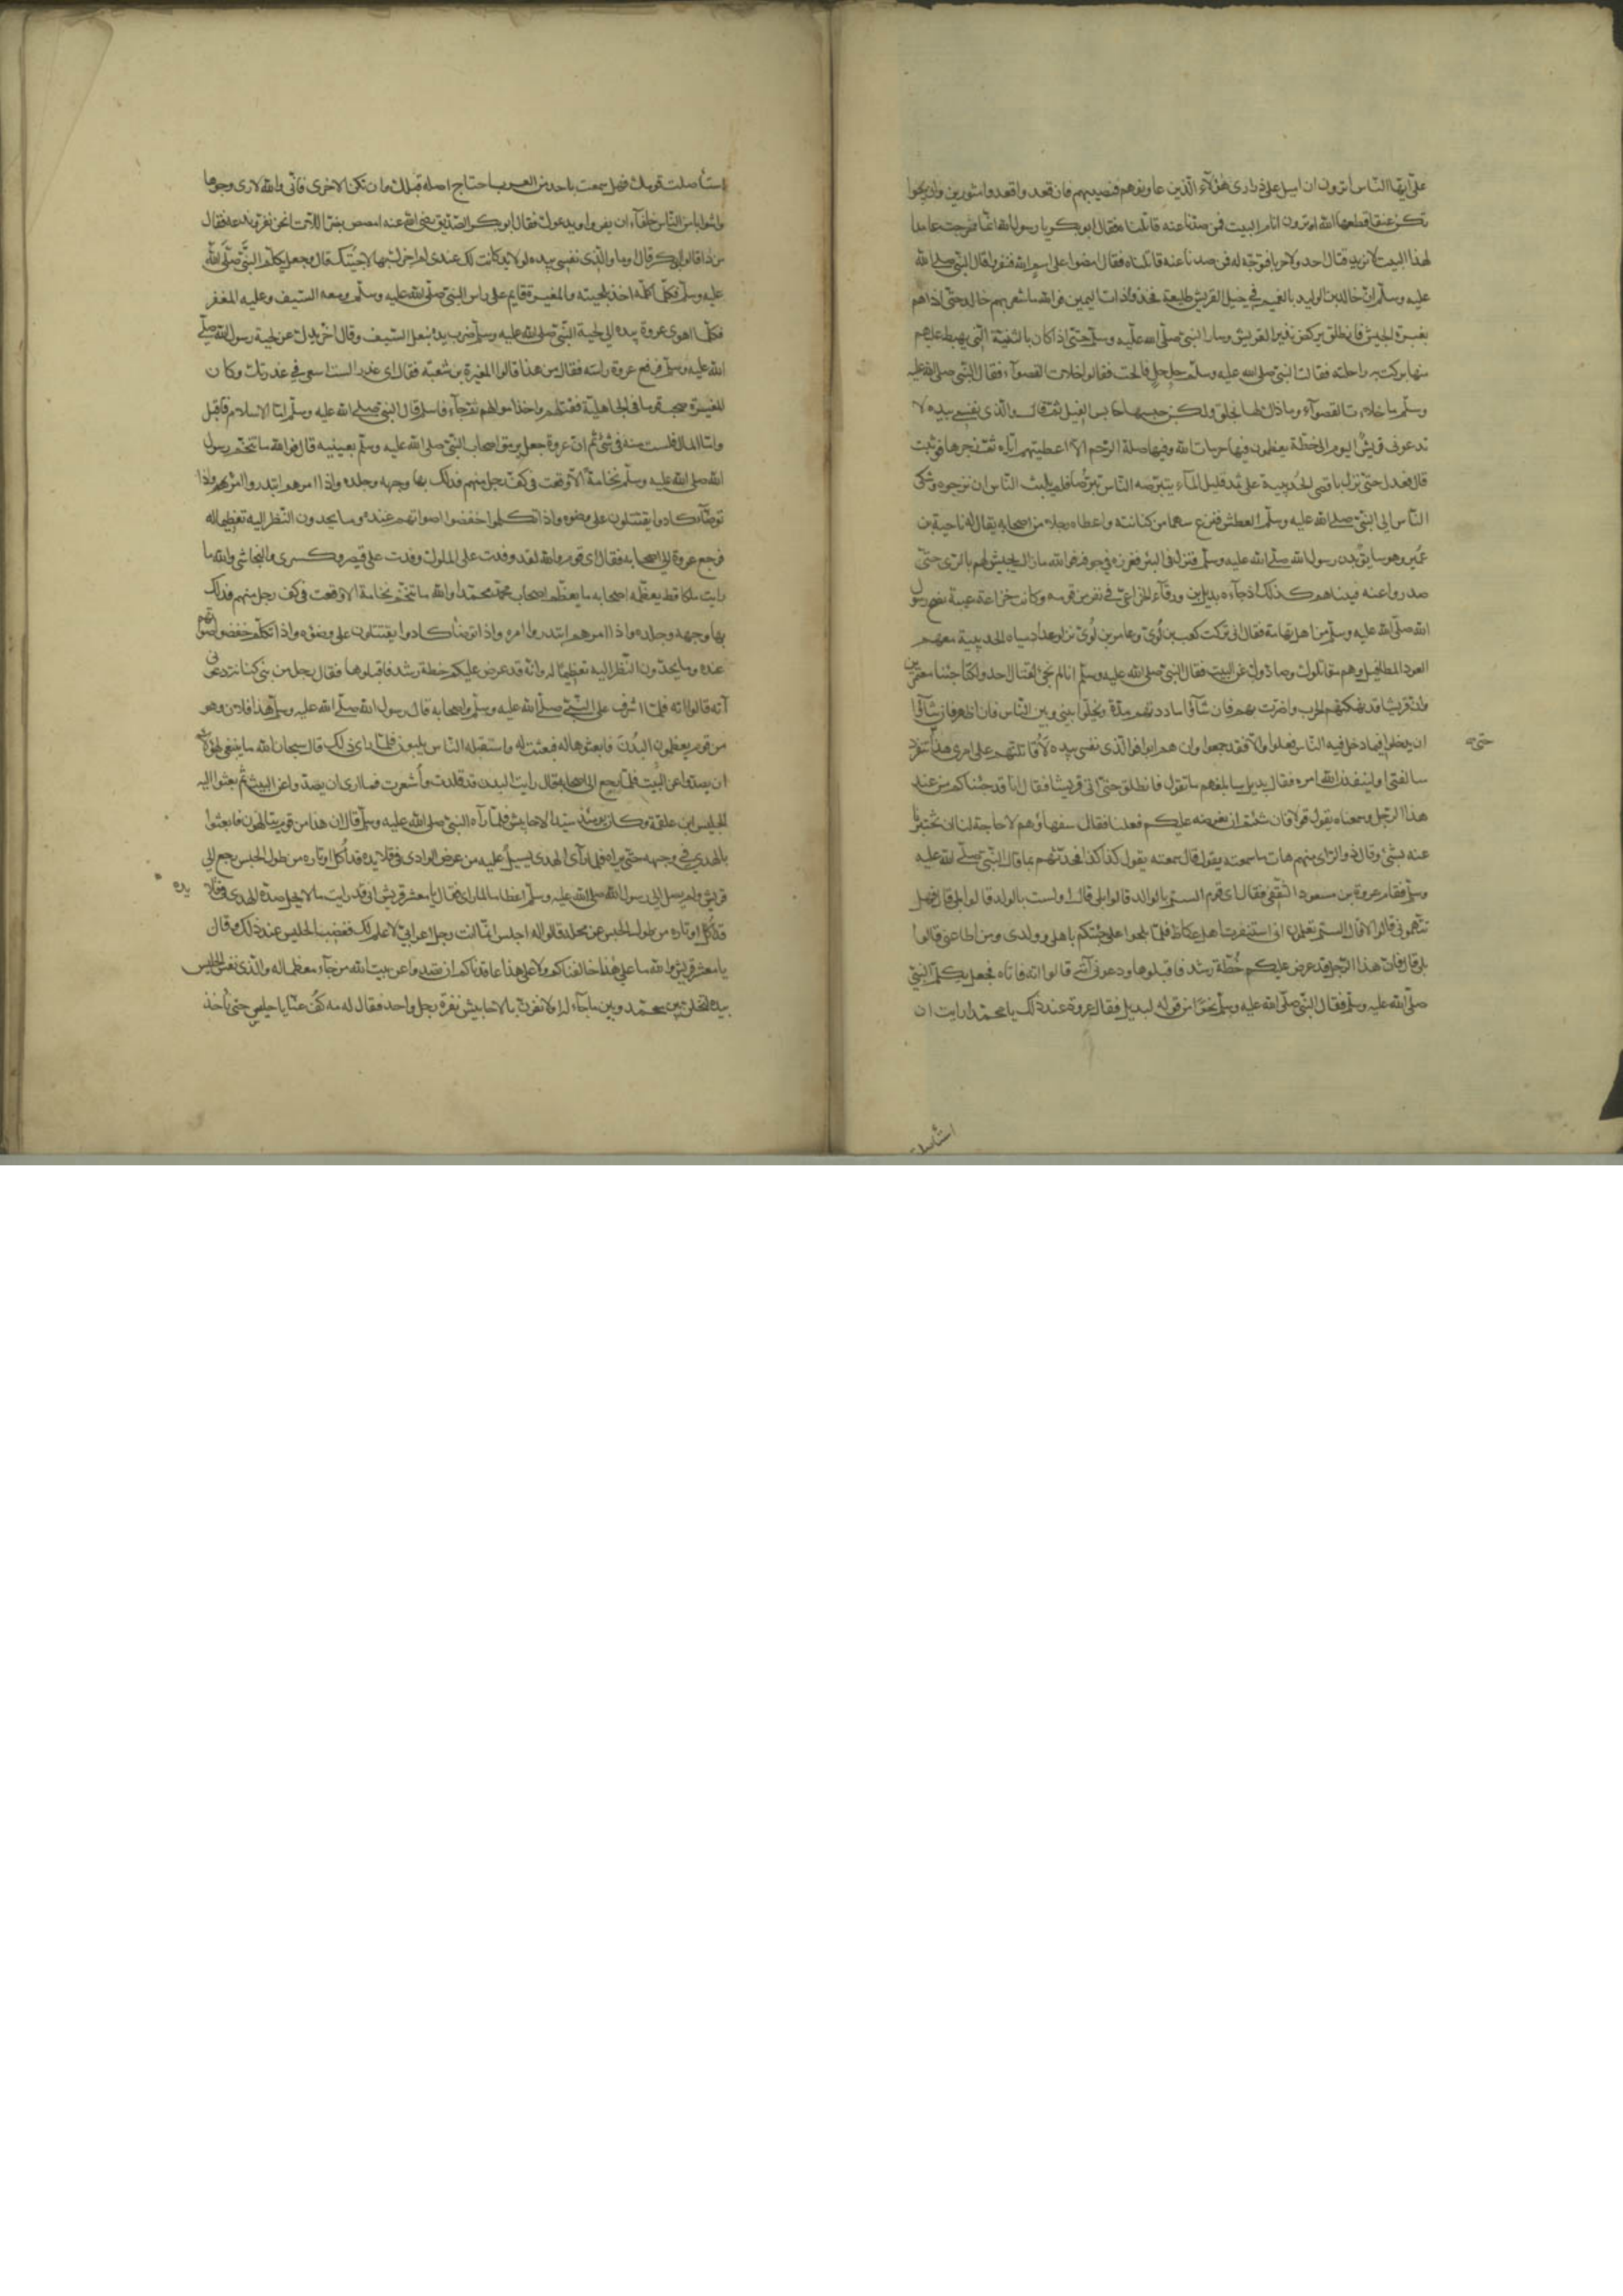 علىّ ايّها النّاس أترون ان اميل على ذرارى هٰؤلآء الّذين عاونوهم فنصيبهم فان قعدوا قعدوا موتورين وان نجوا
تكن عنقا قطعها الله او ترون ان نؤم البيت فمن صدّنا عنه قاتلناه فقال ابو بكر يا رسول الله انّما خرجت عامدا
لهذا البيت لا تريد قتال احد ولا حربا فتوجّه له فمن صدنا عنه قاتلناه فقال امضوا على اسم الله فنفروا قال النّبىّ صلى الله
عليه وسلّم انّ خالد بن الوليد بالغميم فى خيل لقريش طليعة فخذوا ذات اليمين فوالله ما شعر بهم خالد حتّى اذا هم
بغبرة الجيش فانطلق يركض نذيرا لقريش وسار النبىّ صلّى الله عليه وسلّم حتّى اذا كان بالثنيّة الّتى يهبط عليهم
منها بركت به راحلته فقال النبىّ صلى الله عليه وسلّم حل حل فالحت فقالوا خلات القصوآء فقال النّبى صلى الله عليه
وسلّم ما خلات القصوآء وما ذاك لها بخلق ولكن حبسها حابس الفيل ثمّ قال والذى نفسى بيده لا
تدعونى قريش اليوم الى خطّة يعظمون فيها حرمات الله وفيها صلة الرّحم الّا اعطيتهم ايّاه ثمّ زجرها فوثبت
قال فعدل حتّى نزل باقصى الحديبية على ثمد قليل المآء يتبرّضه النّاس تبرّضا فلم يلبث النّاس ان نزحوه وشكى
النّاس الى النّبىّ صلى الله عليه وسلّم العطش فنزع سهما من كنانته واعطاه رجلا من اصحابه يقال له ناحية بن
عُمَير وهو سايق بدن رسول الله صلّى الله عليه وسلّم فنزل فى البئر فغرزه فى جوفه فوالله ما زال يجيش لهم بالرّى حتّى
صدروا عنه فبيناهم كذلك اذ جآءه بديل بن ورقآء الخزاعىّ فى نفر من قومه وكانت خزاعة عيبة نصح رسول
الله صلّى الله عليه وسلّم من اهل تهامة فقال انى تركت كعب بن لُوىّ وعامر بن لُوىّ نزلوا اعداد مياه الحديبية معهم
العوذ المطافيل وهم مقاتلوك وصادّوك عن البيت فقال النبىّ صلى الله عليه وسلّم انا لم نجئ لقتال احد ولكنّا جئنا معتمرين
وانّ قريشا قد نهكتهم الحرب واضرّت بهم فان شآؤا ماددتهم مدّة ويخلّوا بينى وبين النّاس فان اظهر فان شآؤا
ان يدخلوا فيما دخل فيه النّاس فعلوا والّا فقد جموا وان هم ابوا فوالّذى نفسى بيده لاقاتلنّهم على امرى هذا حتى تنفرد
سالفتى او لينفذنّ الله امره فقال بديل سابلغهم ما تقول فانطلق حتّى اتى قريشا فقال انّا قد جئناكم من عند
هذا الرّجل وسمعناه يقول قولا فان شئتم ان نعرضه عليكم فعلنا فقال سفهاؤهم لا حاجة لنا ان تخبرنا
عنه بشئ وقال ذو الرّاى منهم هات ما سمعته يقول قال سمعته يقول كذا كذا فحدّثهم بما قال النّبىّ صلّى الله عليه
وسلّم فقام عروة بن مسعود الثّقفى فقال اى قوم الستم بالوالد قالوا بلى قال اولست بالولد قالوا بلى قال فهل
تتّهمونى قالوا لا قال الستم تعلمون انى استنفرت اهل عكاظ فلمّا بلحوا علىّ جئتكم باهلى وولدى ومن اطاعنى قالوا
بلى قال فانّ هذا الرّجل قد عرض عليكم خُطّة رشد فاقبلوها ودعونى آتيه قالوا ائته فاتاه فجعل يكلّم النّبىّ
صلّى الله عليه وسلّم فقال النّبىّ صلّى الله عليه وسلّم نحوًا من قوله لبديل فقال عروة عند ذلك يا محمّد ارايت ان
استأصلت
استأصلت قومك فهل سمعت باحد من العرب اجتاح اصله قبلك وان تكن الاخرى فانّى والله لارى وجوها
واشوابا من النّاس خلقآء ان يفروا ويدعوك فقال ابو بكر الصدّيق رضى الله عنه امصص بظر اللّات انحن نفرّ وندعه فقال
من ذا قالوا ابو بكر قال اما والّذى نفسى بيده لولا يد كانت لك عندى لم اجزك بها لاجبتك قال وجعل يكلّم النّبىّ صلّى الله
عليه وسلّم فكلّما كلّمه اخذ بلحيته والمغيرة قايم على راس النبىّ صلّى الله عليه وسلّم ومعه السّيف وعليه المغفر
فكلّما اهوى عروة بيده الى لحية النّبىّ صلى الله عليه وسلّم ضرب يده بنعل السّيف وقال اخّر يدك عن لحية رسول الله صلّى
الله عليه وسلّم فرفع عروة راسه فقال من هذا قالوا المغيرة بن شعبة فقال اى غدر الست اسعى فى غدرتك وكان
المغيرة صحب قوما فى الجاهليّة فقتلهم واخذ اموالهم ثمّ جآء فاسلم قال النبىّ صلى الله عليه وسلّم امّا الاسلام فاقبل
وامّا المال فلست منه فى شئ ثم انّ عروة جعل يرمق اصحاب النّبىّ صلى الله عليه وسلّم بعينيه قال فوالله ما تنخّم رسول
الله صلى الله عليه وسلّم نخامةً الّا وقعت فى كفّ رجل منهم فدلك بها وجهه وجلده واذا امرهم ابتدروا امره واذا
توضّأ كادوا يقتتلون على وضوءه واذا تكلّموا خفضوا اصواتهم عنده وما يحدون النّظر اليه تعظيما له
فرجع عروة الى اصحابه فقال اى قوم والله لقد وفدت على الملوك وفدت على قيصر وكسرى والنجاشى والله ما
رايت ملكا قط يعظّمه اصحابه ما يعظّم اصحاب محمّد محمّدا والله ما تنخّم نخامة الا وقعت فى كف رجل منهم فدلك
بها وجهه وجلده واذا امرهم ابتدروا امره واذا توضّأ كادوا يقتتلون على وضوءه واذا تكلّم خفضوا اصواتهم
عنده وما يحدّون النّظر اليه تعظيمًا له وانّه قد عرض عليكم خطة رشد فاقبلوها فقال رجل من بنى كنانة دعونى
آته قالوا ائته فلمّا اشرف على النّبىّ صلّى الله عليه وسلّم واصحابه قال رسول الله صلّى الله عليه وسلّم هذا فلان وهو
من قوم يعظمون البُدنَ فابعثوها له فبعثت له واستقبله النّاس يلبون فلمّا راى ذلك قال سبحان الله ما ينبغى لهؤلاء
ان يصدّوا عن البيت فلمّا رجع الى اصحابه قال رايت البدن قد قلدت وأُشعرت فما ارى ان يصدّوا عن البيت ثمّ بعثوا اليه
الحليس ابن علقمة وكان يومئذ سيّد الاحابيش فلمّا رآه النبىّ صلى الله عليه وسلّم قال ان هذا من قوم يتالهون فابعثوا
بالهدى فى وجهه حتّى يراه فلمّا رآى الهدى يسيلُ عليه من عرض الوادى فى قلايده قد اُكل اوتاره من طول الحبس رجع الى
قريش ولم يصل الى رسول الله صلى الله عليه وسلّم اعظاما لما راى فقال يا معشر قريش انى قد رايت ما لا يحل صدّه الهدى فى قلايده
قد اُكل اوتاره من طول الحبس عن محله قالوا له اجلس انّما انت رجل اعرابىّ لا علم لك فغضب الحليس عند ذلك وقال
يا معشر قريش والله ما على هٰذا حالفناكم ولا على هذا عاقدناكم ان تصدوا عن بيت الله من جآءه معظما له والّذى نفس الحليس
بيده لتخلن بين محمّد وبين ما جآء له او لانفرنّ بالاحابيش نفرة رجل واحد فقال له مه كفّ عنّا يا حليس حتى نأخذ